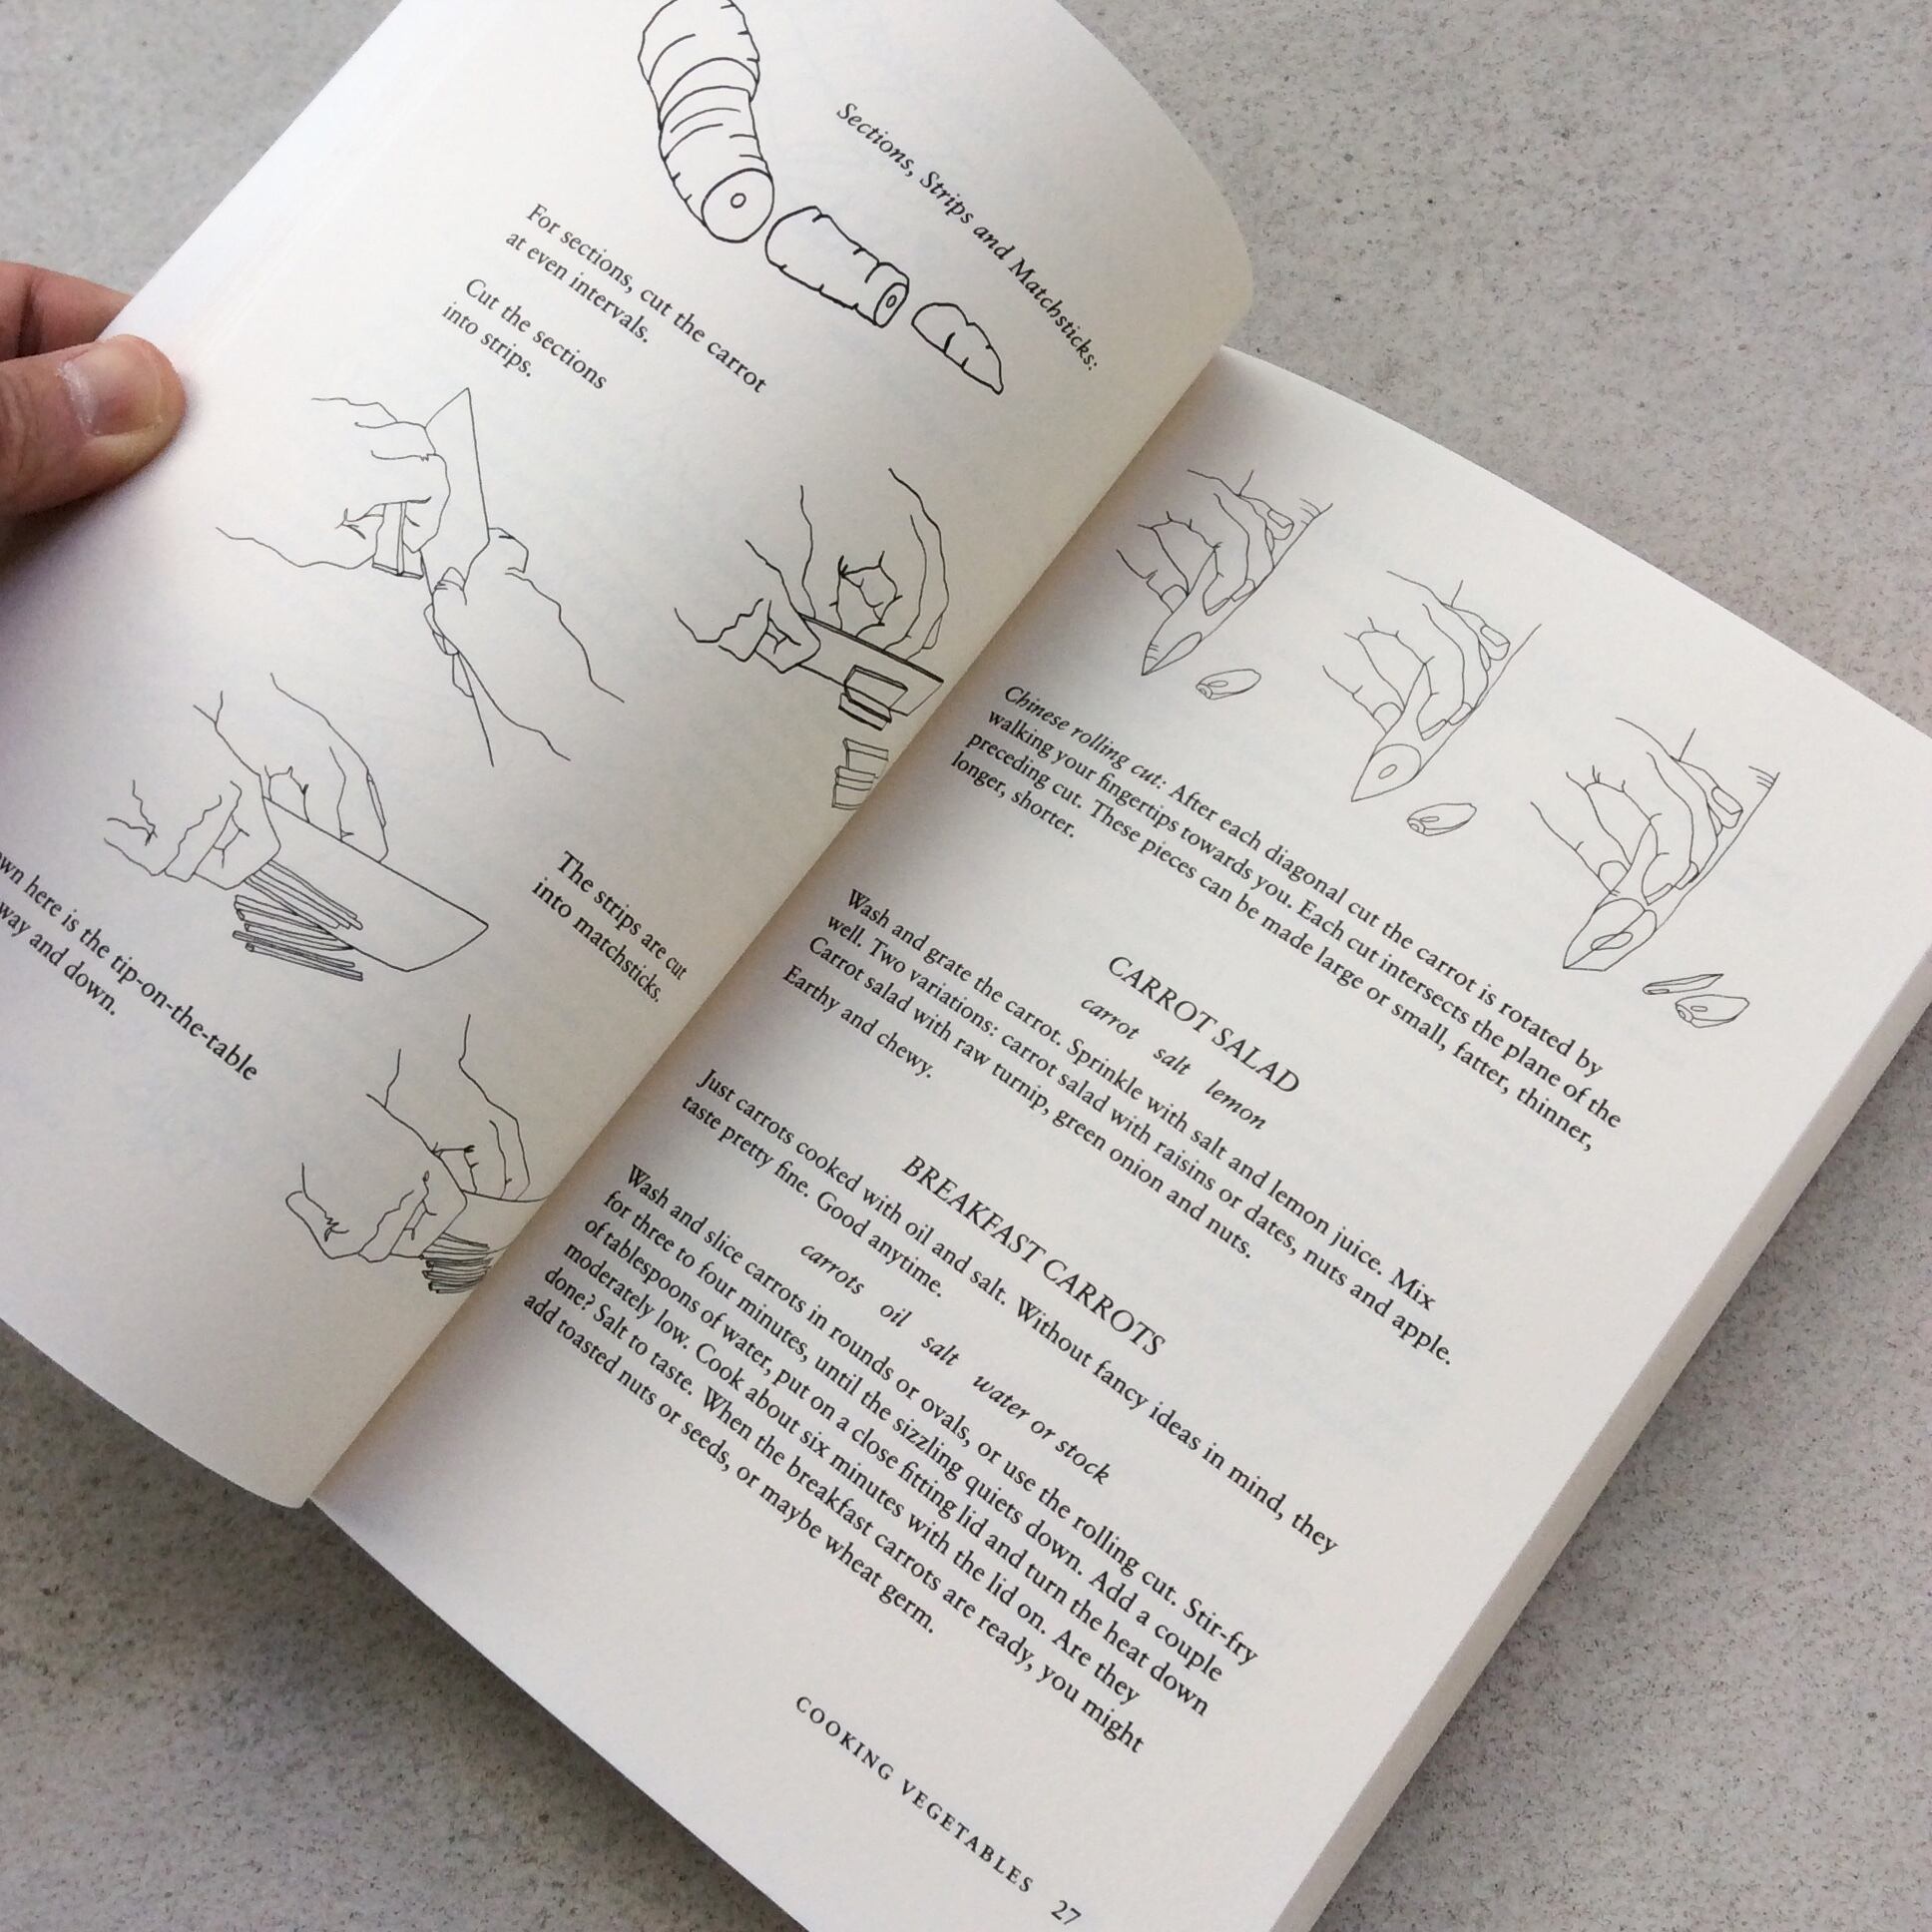 Sections, Strips and Matchsticks:
For sections, cut the carrot
at even intervals.
Cut the sections
into strips.
The strips are cut
into matchsticks.
here is the tip-on-the-table
way and down.
Chinese rolling cut: After each diagonal cut the carrot is rotated by
walking your fingertips towards you. Each cut intersects the plane of the
preceding cut. These pieces can be made large or small, fatter, thinner,
longer, shorter.
CARROT SALAD
carrot salt lemon
Wash and grate the carrot. Sprinkle with salt and lemon juice. Mix
well. Two variations: carrot salad with raisins or dates, nuts and apple.
Carrot salad with raw turnip, green onion and nuts.
Earthy and chewy.
BREAKFAST CARROTS
Just carrots cooked with oil and salt. Without fancy ideas in mind, they
taste pretty fine. Good anytime.
carrots oil salt water or stock
Wash and slice carrots in rounds or ovals, or use the rolling cut. Stir-fry
for three to four minutes, until the sizzling quiets down. Add a couple
of tablespoons of water, put on a close fitting lid and turn the heat down
moderately low. Cook about six minutes with the lid on. Are they
done? Salt to taste. When the breakfast carrots are ready, you might
add toasted nuts or seeds, or maybe wheat germ.
COOKING VEGETABLES 27